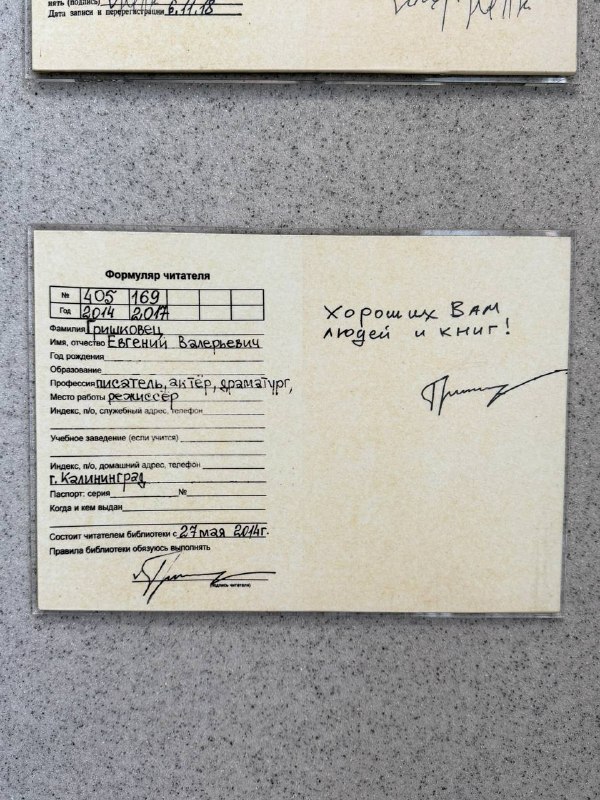 нять (подпись)
Дата записи и перерегистрации 6.11.18
Формуляр читателя
№ 405 169
Год 2014 2017
Фамилия Гришковец
Имя, отчество Евгений Валерьевич
Год рождения
Образование
Профессия писатель, актёр, драматург,
Место работы режиссёр
Индекс, п/о, служебный адрес, телефон
Учебное заведение (если учится)
Индекс, п/о, домашний адрес, телефон
г. Калининград
Паспорт: серия №
Когда и кем выдан
Состоит читателем библиотеки с 27 мая 2014г.
Правила библиотеки обязуюсь выполнять
(подпись читателя)
Хороших Вам
людей и книг!